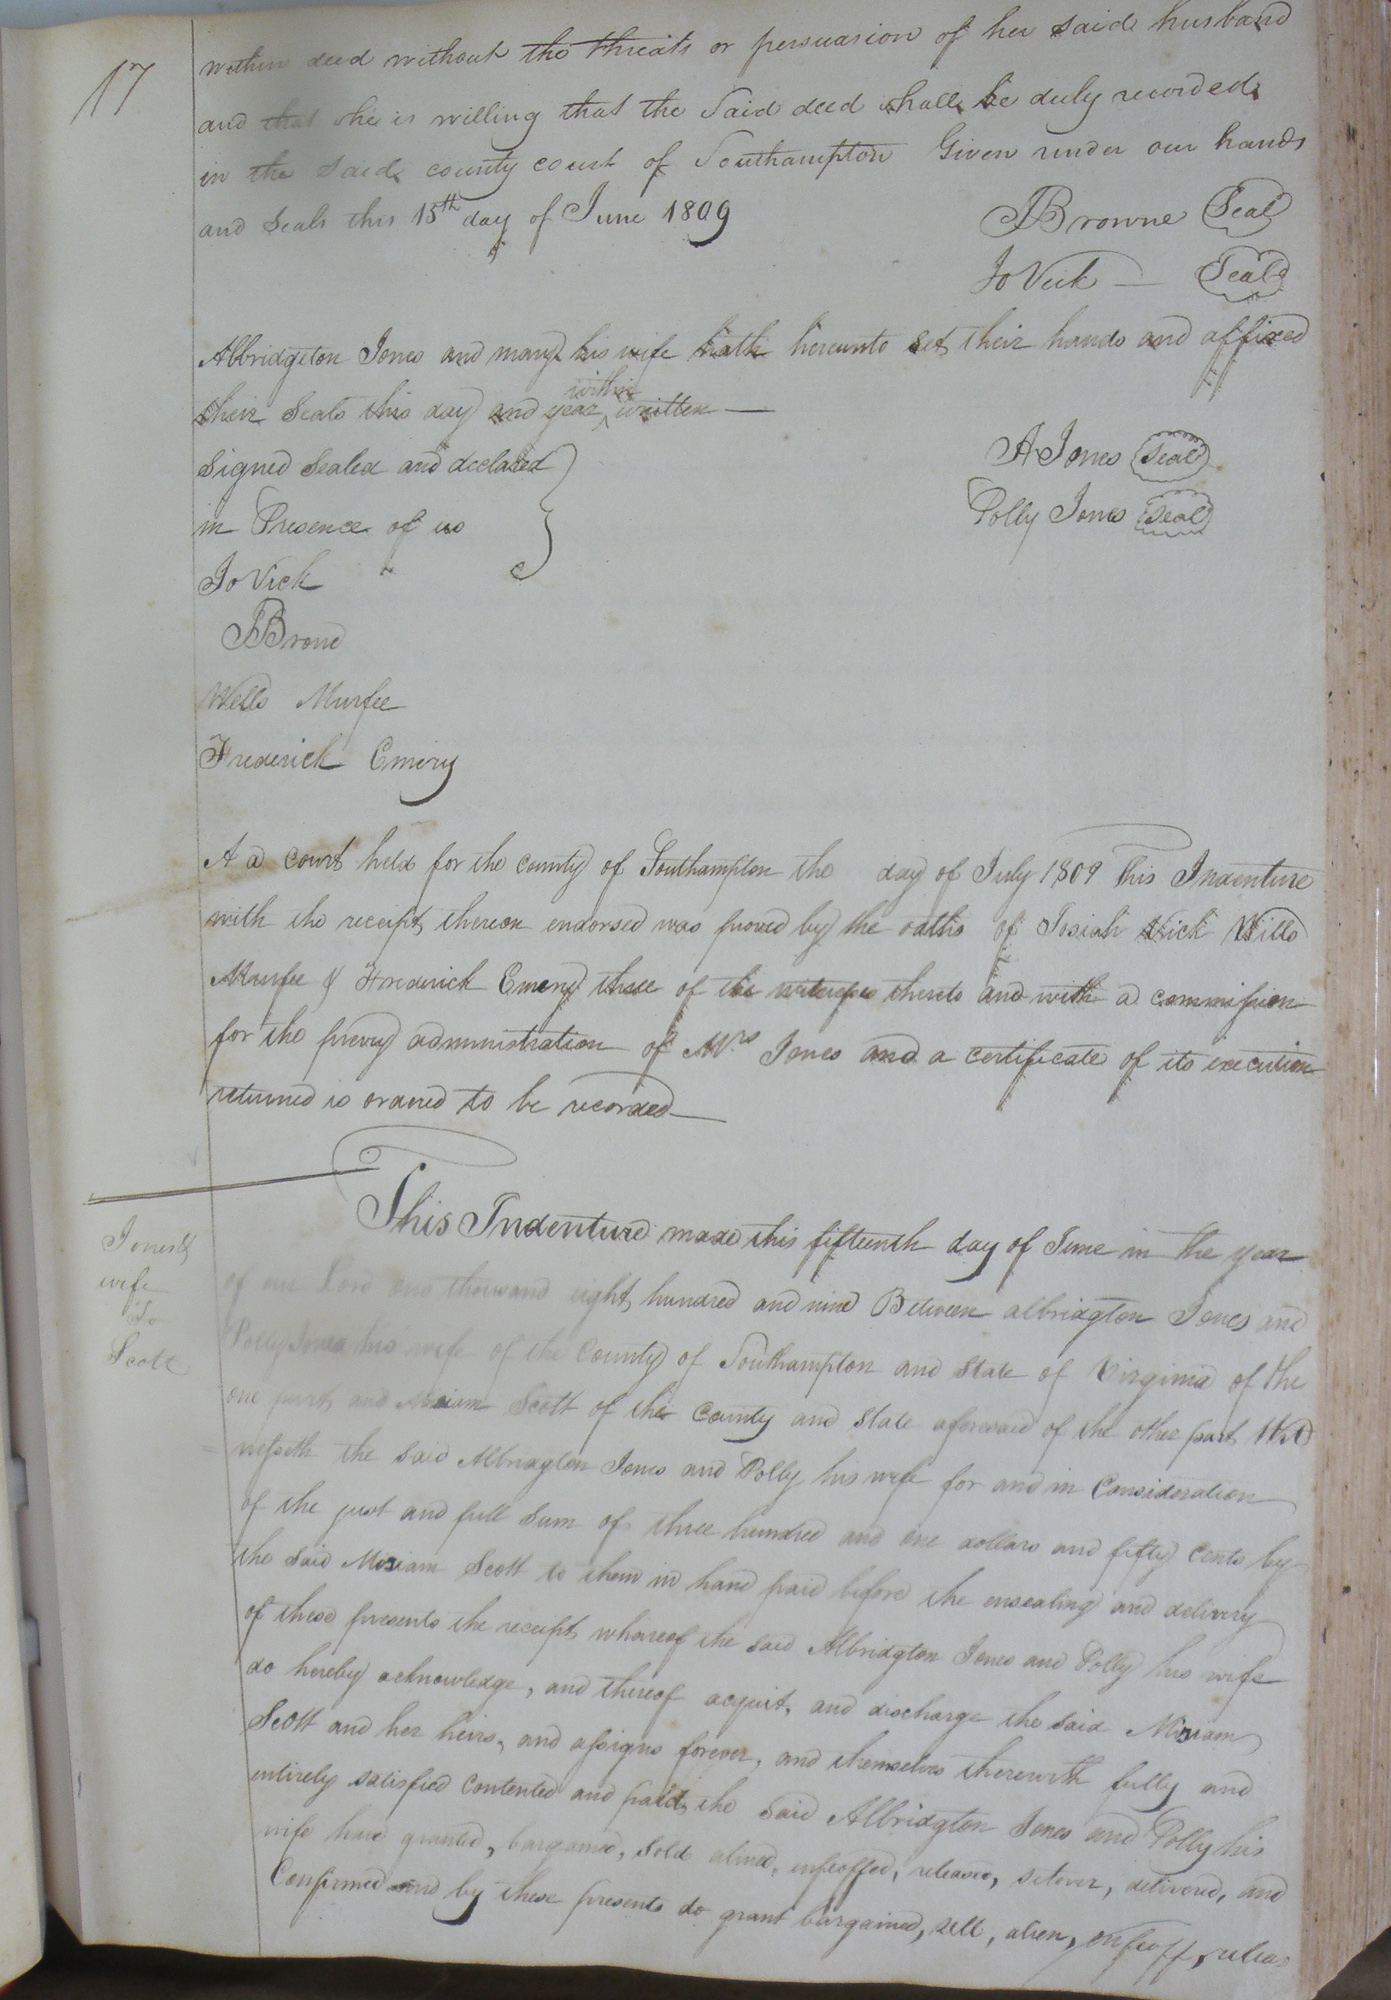 17
within deed without the threats or persuasion of her said husband
and that she is willing that the Said deed shall be duly recorded
in the said county court of Southampton Given under our hands
and Seals this 15th day of June 1809
JBrowne Seal
Jo Vick — Seal
Albridgeton Jones and mary his wife hath hereunto Set their hands and affixed
their Seals this day and year within written —
Signed Sealed and declared
in Presence of us
A Jones Seal
Polly Jones Seal
Jo Vick
JBrone
Wells Murfee
Frederick Emery
A a Court held for the County of Southampton the day of July 1809 This Indenture
with the receipt thereon endorsed was proved by the oaths of Josiah Vick Wills
Murfee & Frederick Emery three of the witnesses thereto and with a commission
for the prevy administration of Mrs Jones and a certificate of its execution
returned is ordered to be recorded
Jones &
wife
To
Scott
This Indenture made this fifteenth day of June in the year
of our Lord one thousand eight hundred and nine Between albridgton Jones and
Polly Jones his wife of the County of Southampton and State of Virginia of the
one part and Miriam Scott of the County and State aforesaid of the other part Wit
= nesseth the said Albridgton Jones and Polly his wife for and in Consideration
of the just and full Sum of three hundred and one dollars and fifty Cents by
the said Miriam Scott to them in hand paid before the ensealing and delivery
of these presents the receipt whareof the said Albridgton Jones and Polly his wife
do hereby acknowledge, and thereof acquit, and discharge the said Miriam
Scott and her heirs, and assigns forever, and themselves therewith fully and
entirely satisfied Contented and paid, the Said Albridgton Jones and Polly his
wife have granted, bargained, Sold aliend, enfeoffed, released, setover, delivered, and
Confirmed and by these presents do grant bargained, sell, alien, enfeoff, releas